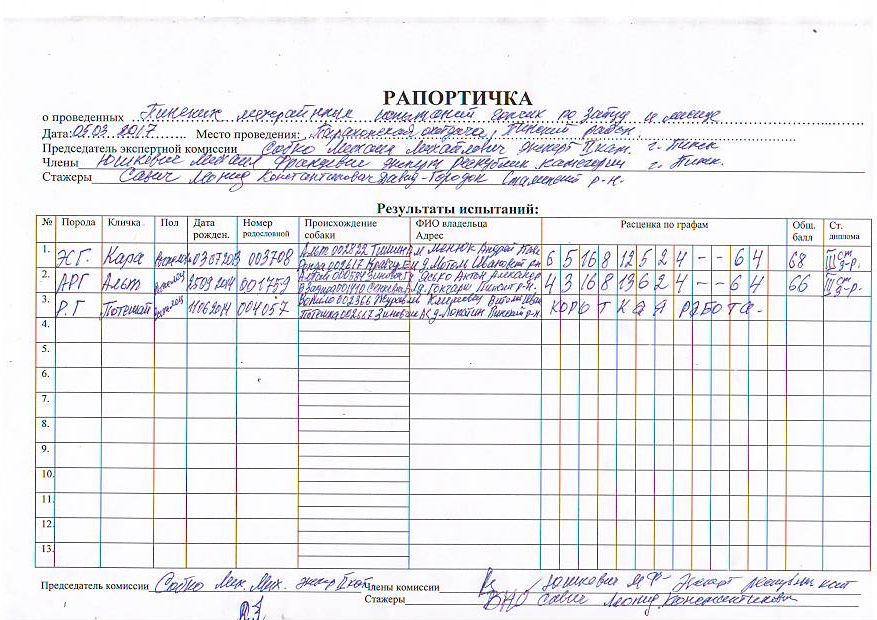 РАПОРТИЧКА
о проведенных Пинских межрайонных испытаний гончих по зайцу и лисице
Дата: 05.03.2017 Место проведения: , Пинский район
Председатель экспертной комиссии Собко Михаил Михайлович эксперт II кат. г. Пинск
Члены Юшкевич Михаил Францевич эксперт Республик. категории г. Пинск.
Стажеры Савич Леонид Константинович Давид-Городок Столинский р-н.
Результаты испытаний:
№ Порода Кличка Пол Дата рожден. Номер родословной Происхождение собаки ФИО владельца Адрес Расценка по графам Общ. балл Ст. диплома
1. Э.С.Г. Кара 003708 6 5 16 8 12 5 2 4 - - 6 4 68 III ст. д-р.
2. АРГ Альт 25.09.2014 001759 4 3 16 8 13 6 2 4 - - 6 4 66 III ст. д-р.
3. Р.Г Потешай 11.06.2014 004057 КОРОТКАЯ РАБОТА.
4.
5.
6.
7.
8.
9.
10.
11.
12.
13.
Председатель комиссии Собко Мих. Мих. эксперт II кат. Члены комиссии Юшкевич М.Ф. Эксперт республик кат
Стажеры Савич Леонид Константинович